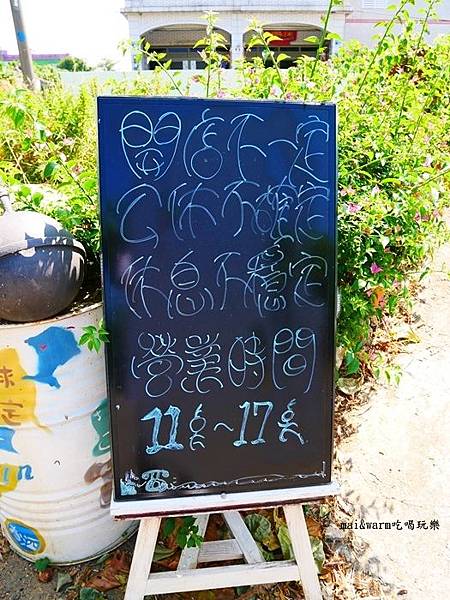 開店不一定
公休不確定
休息不穩定
營業時間
11点~17点
mai&warm吃喝玩樂